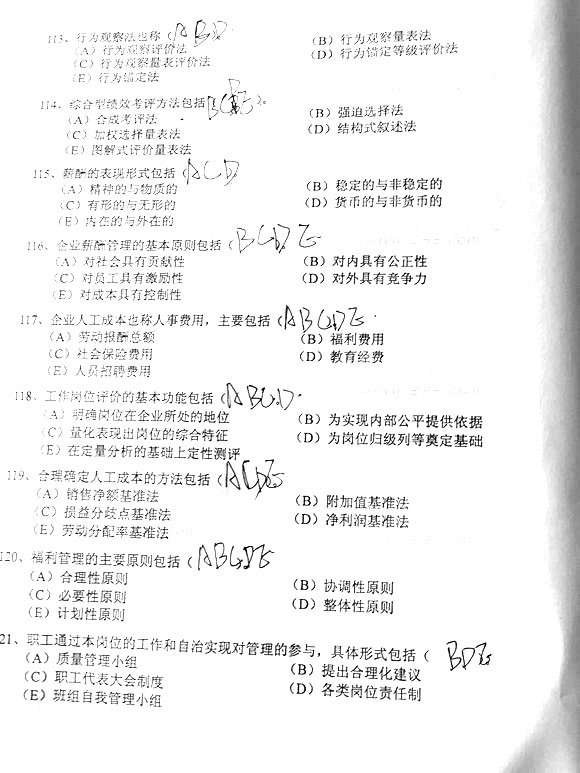 113、行为观察法也称(ABD
(A)行为观察评价法 (B)行为观察量表法
(C)行为观察量表评价法 (D)行为锚定等级评价法
(E)行为锚定法
114、综合型绩效考评方法包括
(A)合成考评法 (B)强迫选择法
(C)加权选择量表法 (D)结构式叙述法
(E)图解式评价量表法
115、薪酬的表现形式包括(ACD
(A)精神的与物质的 (B)稳定的与非稳定的
(C)有形的与无形的 (D)货币的与非货币的
(E)内在的与外在的
116、企业薪酬管理的基本原则包括(BCDE
(A)对社会具有贡献性 (B)对内具有公正性
(C)对员工具有激励性 (D)对外具有竞争力
(E)对成本具有控制性
117、企业人工成本也称人事费用，主要包括(ABCDE
(A)劳动报酬总额 (B)福利费用
(C)社会保险费用 (D)教育经费
(E)人员招聘费用
118、工作岗位评价的基本功能包括(ABCD
(A)明确岗位在企业所处的地位 (B)为实现内部公平提供依据
(C)量化表现出岗位的综合特征 (D)为岗位归级列等奠定基础
(E)在定量分析的基础上定性测评
119、合理确定人工成本的方法包括(ACDE
(A)销售净额基准法 (B)附加值基准法
(C)损益分歧点基准法 (D)净利润基准法
(E)劳动分配率基准法
120、福利管理的主要原则包括(ABCDE
(A)合理性原则 (B)协调性原则
(C)必要性原则 (D)整体性原则
(E)计划性原则
21、职工通过本岗位的工作和自治实现对管理的参与，具体形式包括( BDE
(A)质量管理小组 (B)提出合理化建议
(C)职工代表大会制度 (D)各类岗位责任制
(E)班组自我管理小组